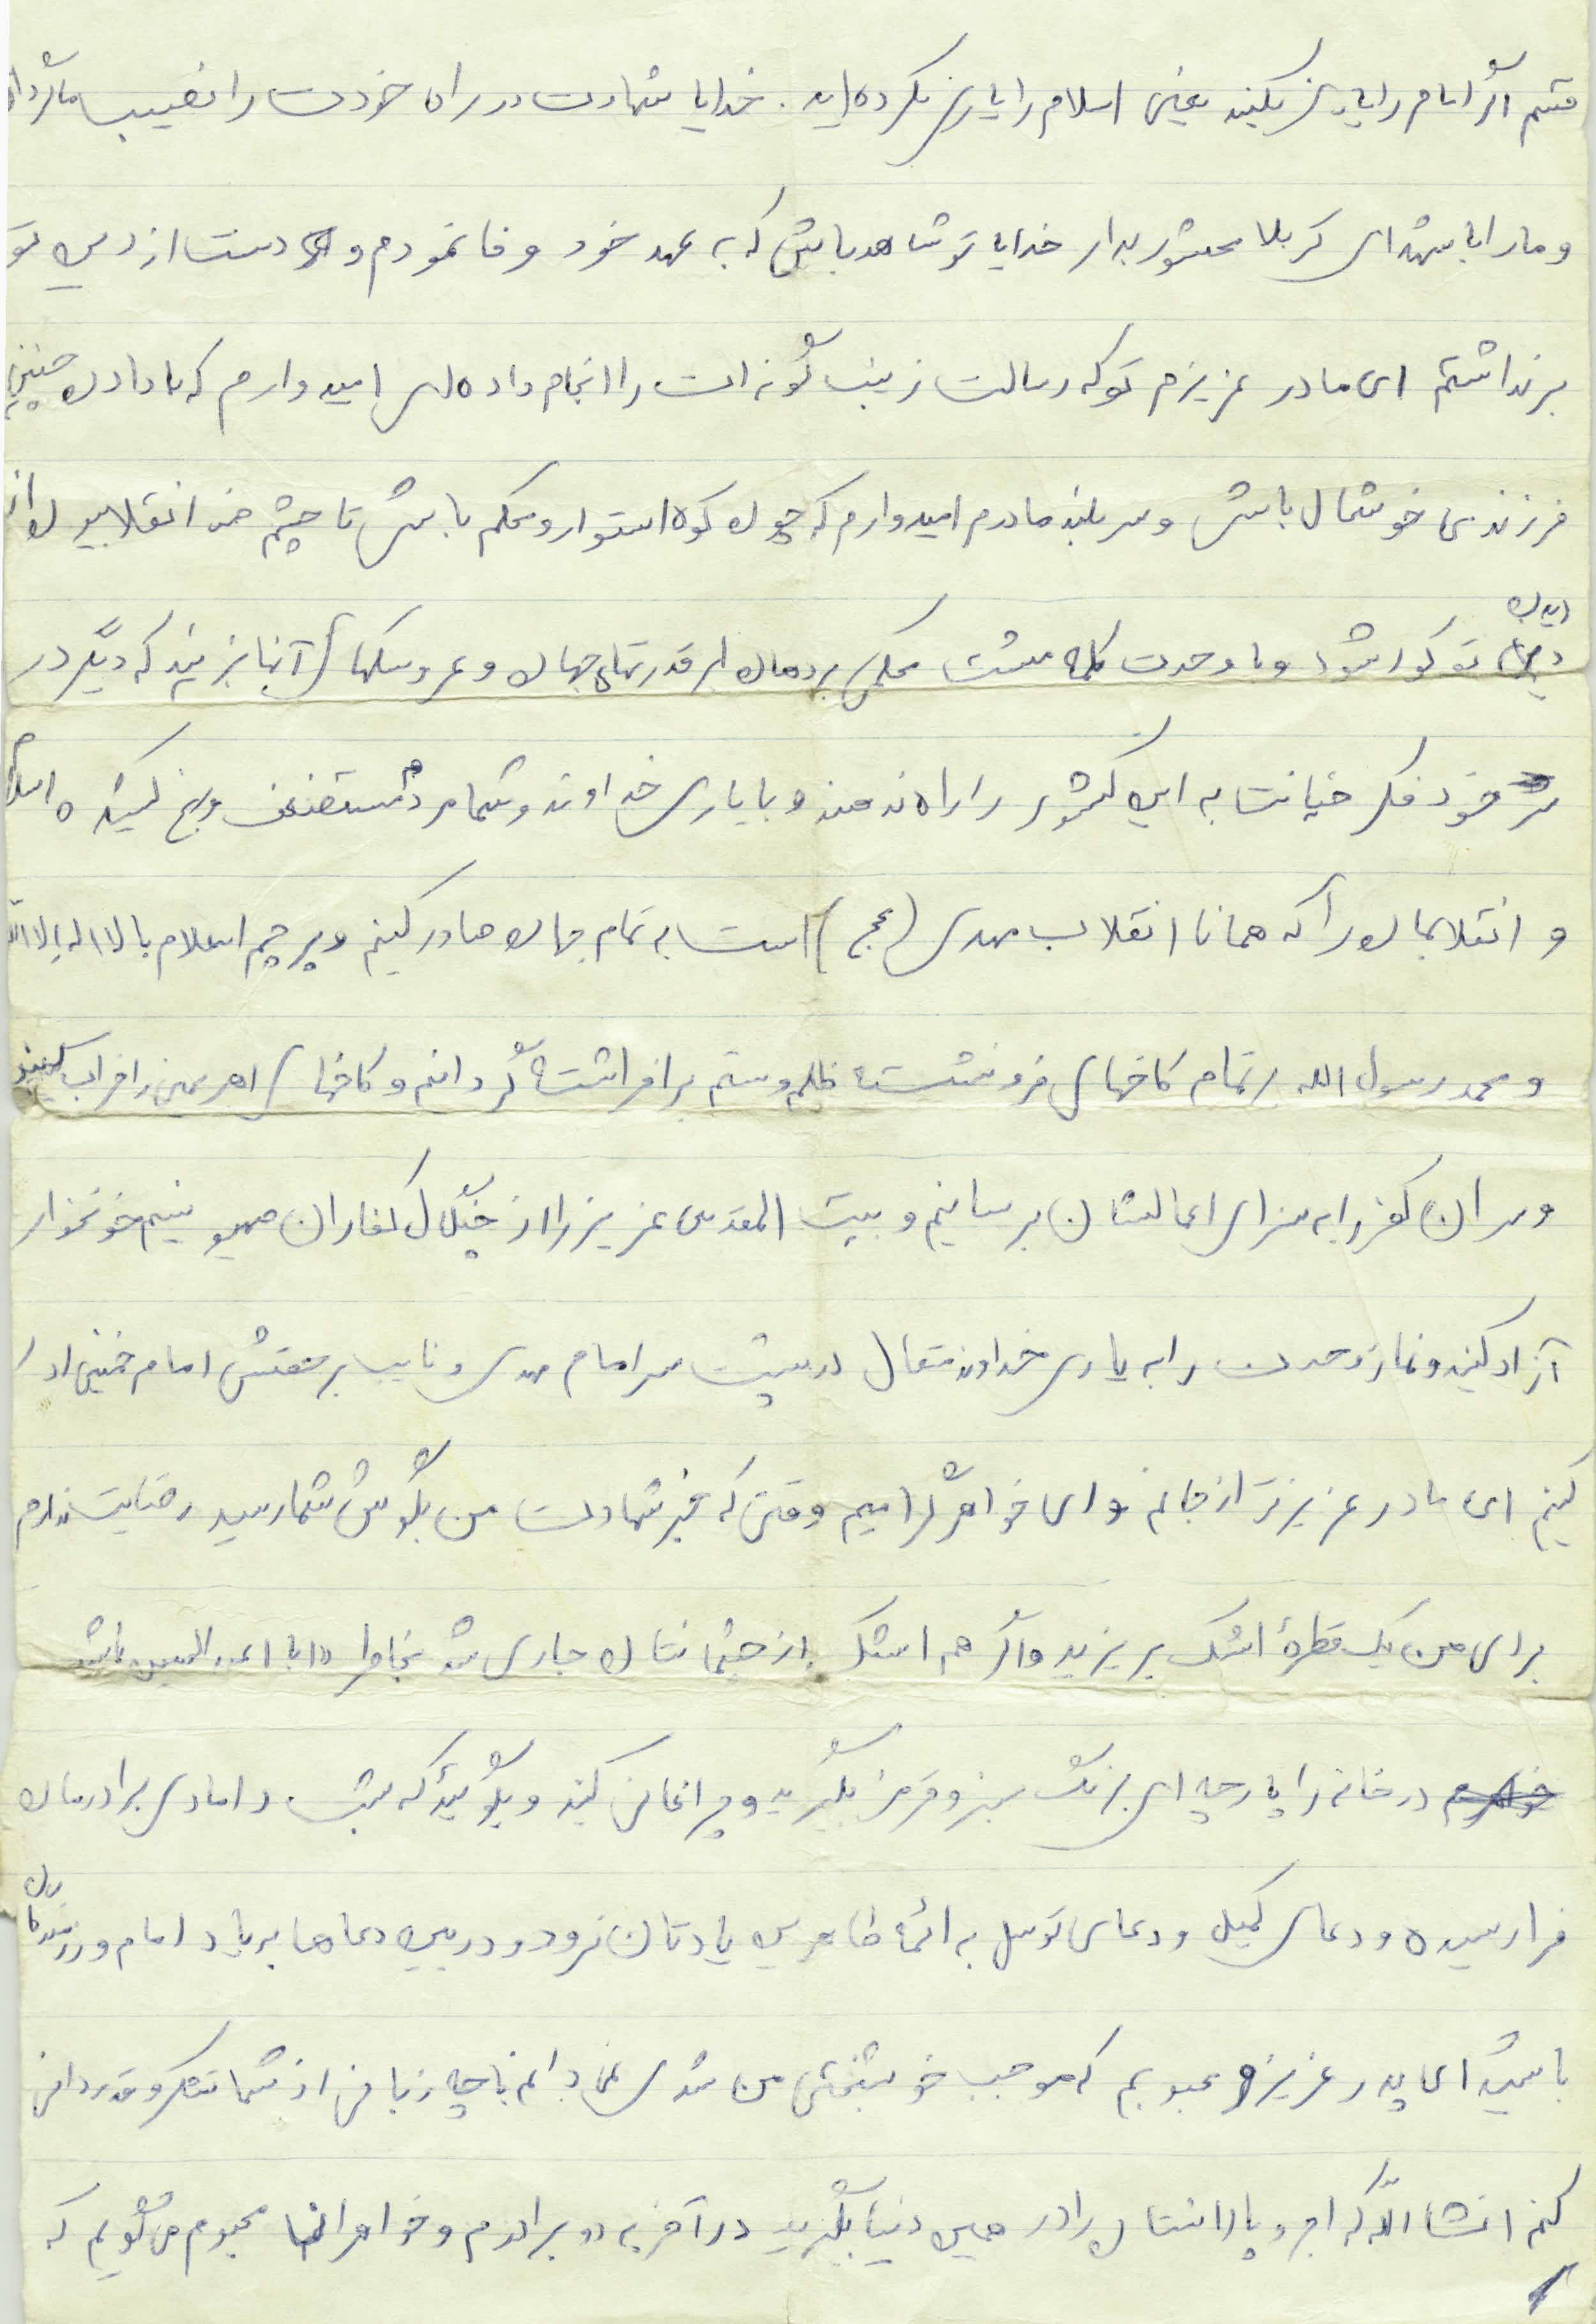 قسم اگر امام را یاری نکنید یعنی اسلام را یاری نکرده‌اید. خدایا شهادت در راه خودت را نصیب ما گردان
و ما را با شهدای کربلا محشور بدار خدایا تو شاهد باش که به عهد خود وفا نمودم و دست از دین تو
برنداشتم ای مادر عزیزم تو که رسالت زینب گونه ات را انجام داده ای امیدوارم که با دادن چنین
فرزندی خوشحال باشی و سربلند مادرم امیدوارم که چون کوه استوار و محکم باشی تا چشم ضد انقلابیون از
دیدن تو کور شود و با وحدت کلمه مشت محکمی بر دهان ابر قدرتهای جهان و عروسکهای آنها بزنید که دیگر در
سر خود فکر خیانت به این کشور را راه ندهند و با یاری خداوند و شما مردم مستضعف و رنج کشیده اسلام
و انقلابمان را که همانا انقلاب مهدی (عج) است به تمام جهان صادر کنیم و پرچم اسلام با لا اله الا الله
و محمد رسول الله بر تمام کاخهای فرو نشسته ظلم و ستم برافراشته گردانیم و کاخهای اهریمنی را خراب کنید
و سران کفر را به سزای اعمالشان برسانیم و بیت المقدس عزیز را از چنگال کفاران صهیونیسم خونخوار
آزاد کنید و نماز وحدت را به یاری خداوند متعال در پشت سر امام مهدی و نایب بر حقش امام خمینی ادا
کنیم ای مادر عزیزتر از جانم و ای خواهر گرامیم وقتی که خبر شهادت من بگوش شما رسید رضایت ندارم
برای من یک قطره اشک بریزید و اگر هم اشک از چشمانتان جاری شد بخاطر ابا عبد الحسین باشد
در خانه را پارچه ای برنگ سبز و قرمز بگیرید و چراغانی کنید و بگوئید که شب دامادی برادرمان
فرا رسیده و دعای کمیل و دعای توسل به ائمه طاهرین یادتان نرود و در بین دعاها به یاد امام و رزمندگان
باشید ای پدر عزیز و محبوبم که موجب خوشبختی من شدی نمی دانم با چه زبانی از شما تشکر و قدردانی
کنم انشاء الله که اجر و پاداشتان را در همین دنیا بگیرید در آخر به دو برادرم و خواهر محبوم می گویم که